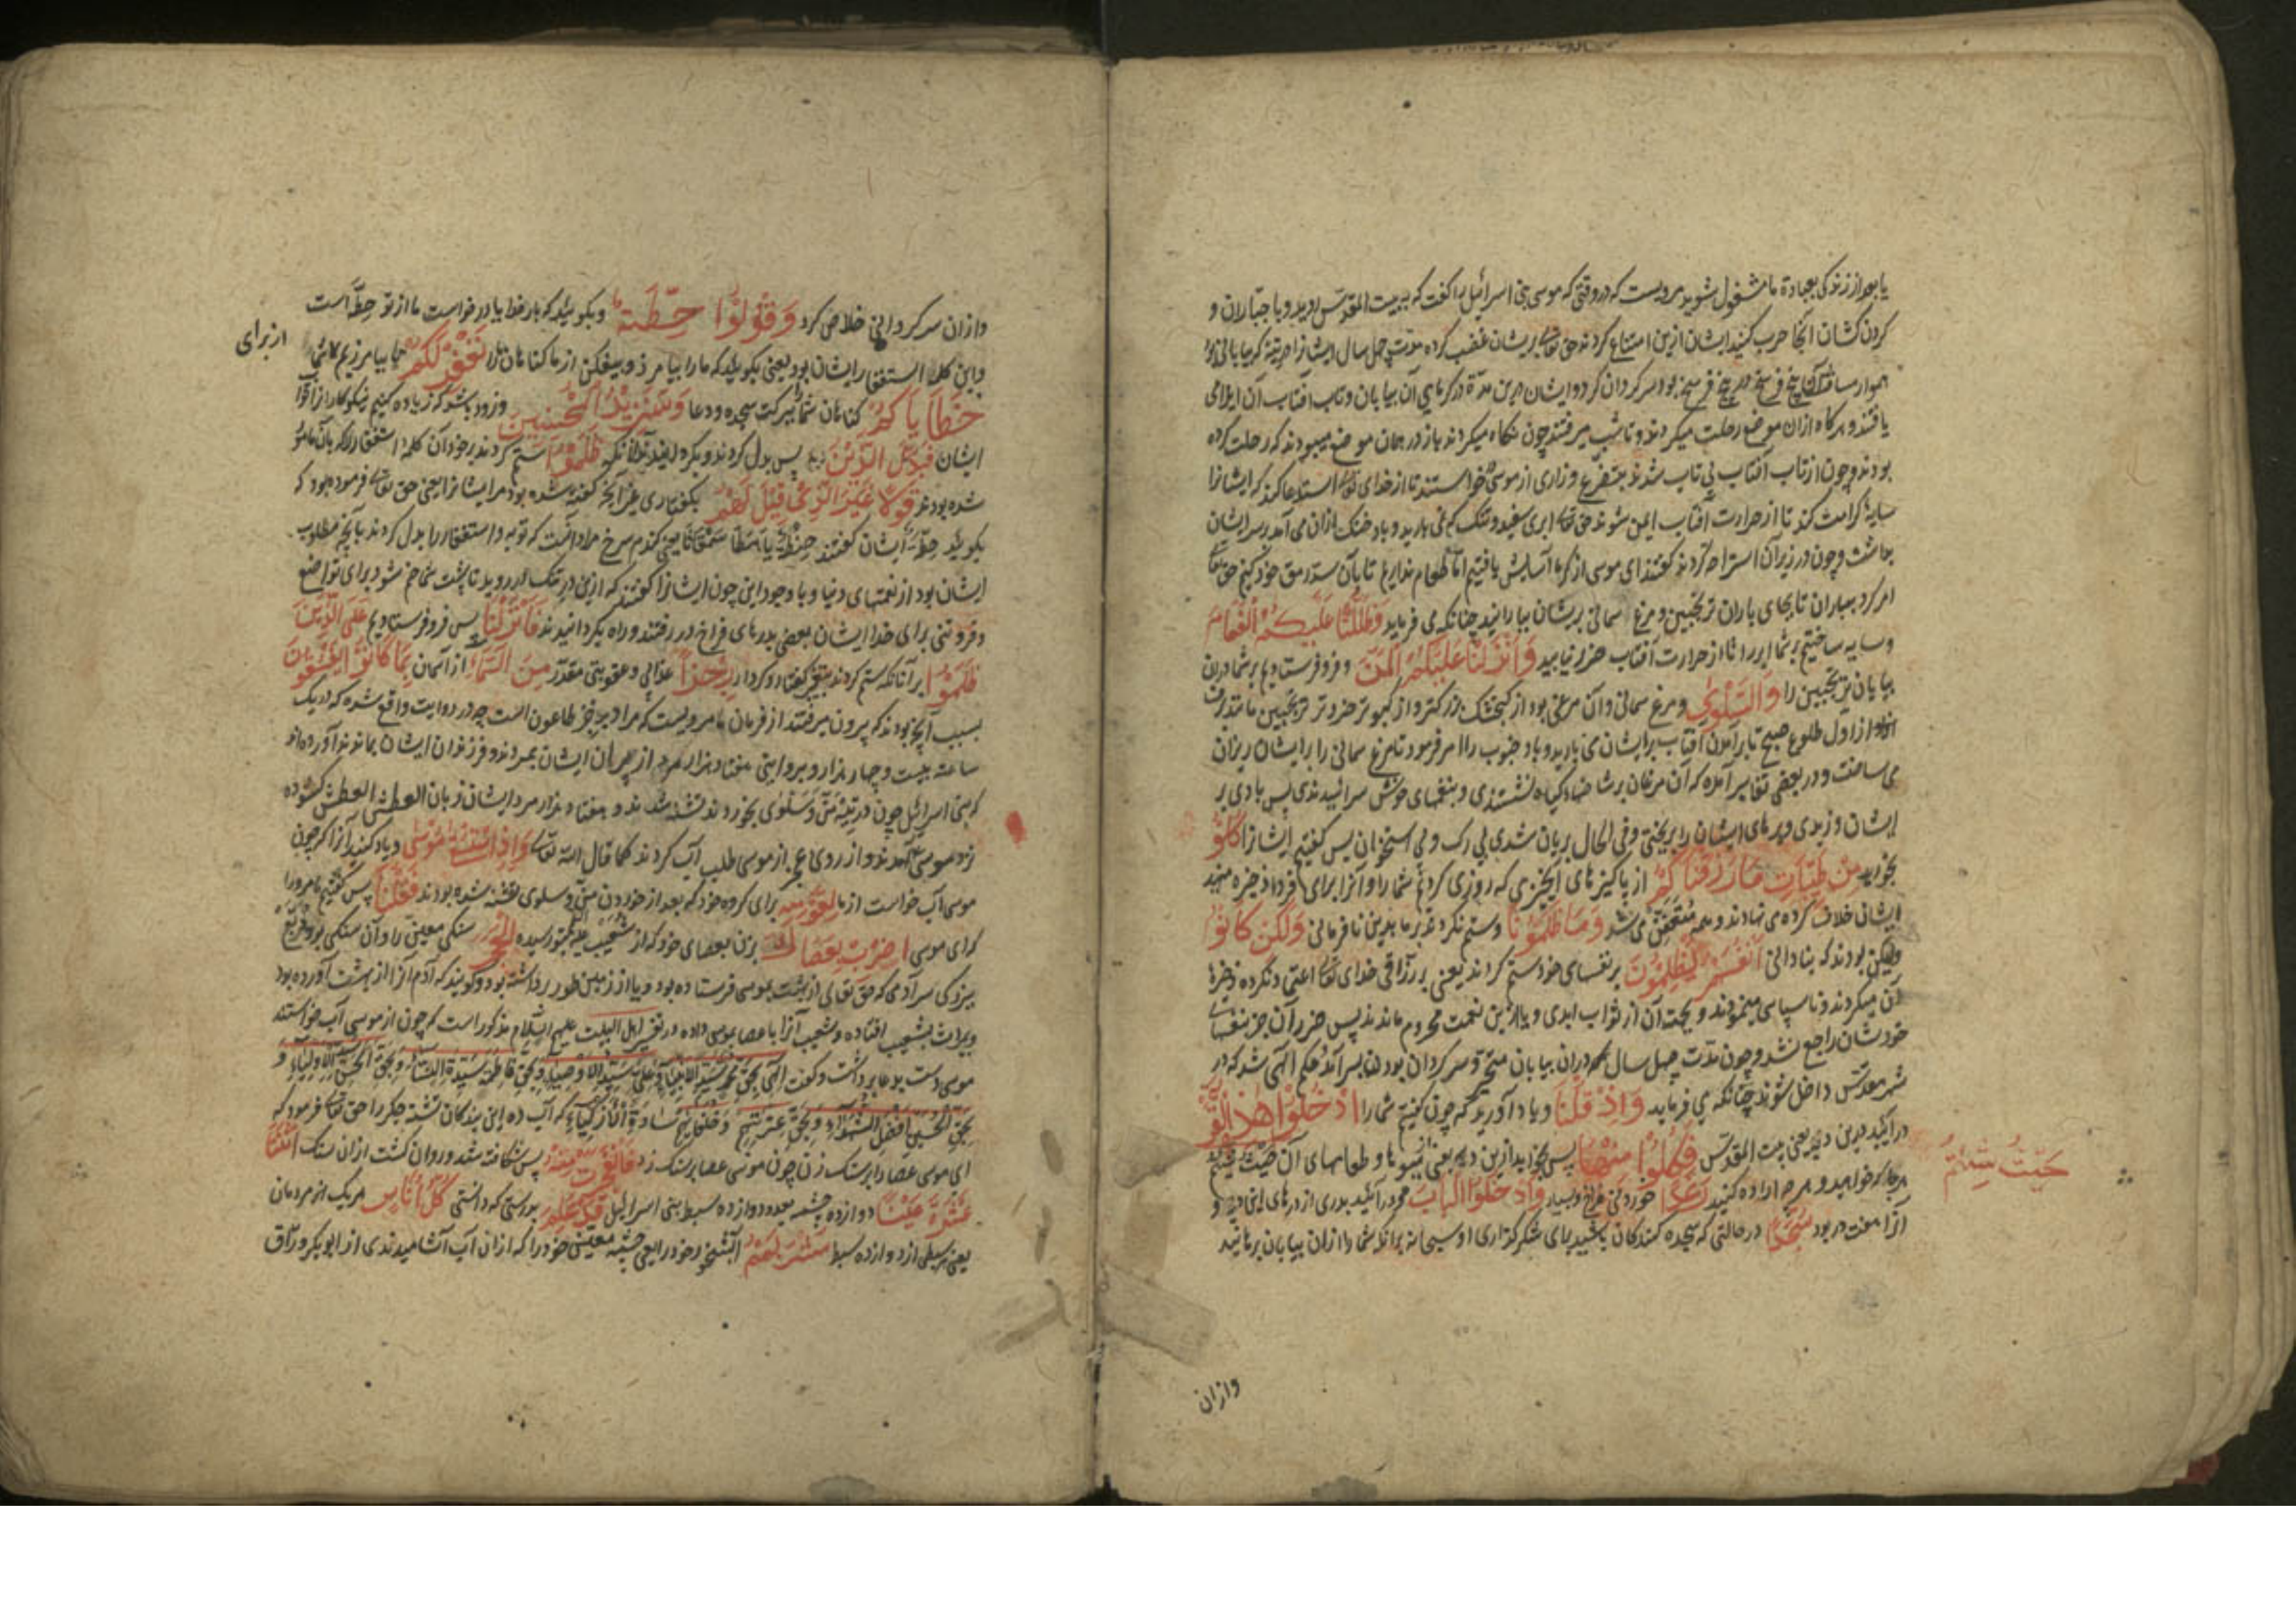 یا بعد از زندگی بعبادة ما مشغول شوید مرویست که در وقتی که موسی بنی اسرائیل را گفت که به بیت المقدس روید و با جباران و
کردن کشان آنجا حرب کنید ایشان ازین امتناع کردند حق تعالی بریشان غضب کرده مدت چهل سال ایشانرا در تیه که بیابانی بود
هموار مسافتش پنج فرسخ در پنج فرسخ بود سرکردان کرد و ایشان درین مدة در کرمای آن بیابان و تاب آفتاب آن ایلامی
یافتند و هرکاه ازان موضع رحلت میکردند و تا شب میرفتند چون نکاه میکردند باز در همان موضع میبودند که رحلت کرده
بودند و چون از تاب آفتاب بی تاب شدند بتضرع و زاری از موسی خواستند تا از خدای تعالی استدعا کند که ایشانرا
سایه کرامت کند تا از حرارت آفتاب ایمن شوند حق تعالی ابری سفید و تنک که نمی بارید و باد خنک ازان می آمد بر سر ایشان
بداشت و چون در زیر آن استراحه کردند گفتند ای موسی از کرما آسایش یافتیم اما طعام نداریم تا بآن سد رمق خود کنیم حق تعالی
امر کرد بباران تا بجای باران ترنجبین و مرغ سمانی بریشان ببارانید چنانکه می فرماید وَظَلَّلْنَا عَلَيْكُمُ الْغَمَامَ
و سایه ساختیم بر شما ابر را تا از حرارت آفتاب ضرر نیابید وَاَنْزَلْنَا عَلَيْكُمُ الْمَنَّ و فرو فرستادیم بر شما دران
بیابان ترنجبین را وَالسَّلْوٰی و مرغ سمانی و آن مرغی بود از کنجشک بزرکتر و از کبوتر خردتر ترنجبین مانند برف
از اول طلوع صبح تا برآمدن آفتاب بر ایشان می بارید و باد جنوب را امر فرمود تا مرغ سمانی را بر ایشان ریزان
می ساخت و در بعضی تفاسیر آمده که آن مرغان بر شاخها و کیاه نشستندی و بنغمهای خوش سرائیدندی پس بادی بر
ایشان وزیدی و پرهای ایشان را بریختی و فی الحال بریان شدی بی رک و بی استخوان پس گفتیم ایشانرا كُلُوْا
بخورید مِنْ طَيِّبَاتِ مَا رَزَقْنَاكُمْ از پاکیزهای آنچیزی که روزی کردیم شما را و آنرا برای فردا ذخیره منهید
ایشان خلاف کرده می نهادند و همه متعفن می شد وَمَا ظَلَمُوْنَا و ستم نکردند بر ما بدین نافرمانی وَلٰكِنْ كَانُوْا
ولیکن بودند که بنادانی اَنْفُسَهُمْ يَظْلِمُوْنَ بر نفسهای خود ستم کردند یعنی بر رزاقی خدای تعالی اعتماد نکرده ذخیرهٔ
آن میکردند و ناسپاسی مینمودند و بجهت آن از ثواب ابدی و یا ازین نعمت محروم ماندند پس ضرر آن جز بنفسهای
خودشان راجع نشد و چون مدت چهل سال دران بیابان متحیر و سرکردان بودند بسر آمد حکم الهی شد که در
شهر مقدس داخل شوند چنانکه می فرماید وَاِذْ قُلْنَا و یاد آورید که چون گفتیم شما را ادْخُلُوْا هٰذِهِ الْقَرْيَةَ
در آئید درین دیه یعنی بیت المقدس فَكُلُوْا مِنْهَا پس بخورید ازین دیه یعنی میوها و طعامهای آن حَيْثُ شِئْتُمْ
حَيْثُ شِئْتُمْ
هرجا که خواهید و هرچه اراده کنید رَغَدًا خوردنی فراخ و بسیار وَادْخُلُوا الْبَابَ و در آئید بدری از درهای این دیه و
آنرا هفت در بود سُجَّدًا در حالتی که سجده کنندکان باشید برای شکر گذاری او سبحانه برانکه شما را ازان بیابان برهانید
وازان
وازان سرکردانی خلاص کرد وَقُوْلُوْا حِطَّةٌ و بکوئید که بار خدایا درخواست ما از تو حِطَّه است
از برای
و این کلمهٔ استغفار ایشان بود یعنی بکوئید که ما را بیامرز و بیفکن از ما کناهان ما را نَغْفِرْ لَكُمْ تا بیامرزیم
خَطَايَاكُمْ کناهان شما ببرکت سجده و دعا وَسَنَزِيْدُ الْمُحْسِنِيْنَ و زود باشد که زیاده کنیم نیکوکاران را
ایشان فَبَدَّلَ الَّذِيْنَ پس بدل کردند آنانکه ظَلَمُوْا ستم کردند بر خود آن کلمهٔ استغفار را که بآن مامور
شده بودند قَوْلًا غَيْرَ الَّذِيْ قِيْلَ لَهُمْ بکفتاری غیر آنچه گفته شده بود مر ایشانرا یعنی حق تعالی فرموده بود که
بکوئید حِطَّه ایشان گفتند حِنْطَه یعنی کندم سرخ مراد آنست که توبه و استغفار را بدل کردند بآنچه مطلوب
ایشان بود از نعمتهای دنیا و با وجود این چون ایشانرا گفتند که ازین در تنک در روید تا پشت شما خم شود برای تواضع
و فروتنی برای خدا ایشان بعضی بدرهای فراخ در رفتند و راه بکردانیدند فَاَنْزَلْنَا پس فرو فرستادیم عَلَى الَّذِيْنَ
ظَلَمُوْا بر آنانکه ستم کردند بتغییر کفتار و کردار رِجْزًا عذابی و عقوبتی مقدر مِنَ السَّمَاءِ از آسمان بِمَا كَانُوْا يَفْسُقُوْنَ
بسبب آنچه بودند که بیرون میرفتند از فرمان ما مرویست که مراد برجز طاعون است چه در روایت واقع شده که در یک
ساعت بیست و چهار هزار و بروایتی هفتاد هزار مرد از پیران ایشان بمردند و فرزندان ایشان بماندند آورده اند
که بنی اسرائیل چون در تیه مَنّ و سَلْوٰی بخوردند تشنه شدند و هفتاد هزار مرد ایشان زبان العطش العطش کشوده
نزد موسی آمدند و از روی عجز از موسی طلب آب کردند کما قال الله تعالی وَاِذِ اسْتَسْقٰى مُوْسٰى و یاد کنید آنرا که چون
موسی آب خواست از ما لِقَوْمِهٖ برای کروه خود که بعد از خوردن من و سلوی تشنه شده بودند فَقُلْنَا پس گفتیم ما مر او را
که ای موسی اضْرِبْ بِعَصَاكَ بزن بعصای خود که از شعیب بتو رسیده الْحَجَرَ سنکی معین را و آن سنکی بود مربع
ببزرکی سر آدمی که حق تعالی از بهشت بموسی فرستاده بود و یا از زمین طور برداشته بود و کویند که آدم آنرا از بهشت آورده بود
و بمیراث بشعیب افتاده و شعیب آنرا با عصا بموسی داده و در تفسیر اهل البیت علیهم السلام مذکور است که چون از موسی آب خواستند
موسی دست بدعا برداشت و گفت الهی بحق محمد سید الانبیاء و بحق علی سید الاوصیاء و بحق فاطمة سیدة النساء و بحق الحسن سید الاولیاء و
بحق الحسین افضل الشهداء و بحق عترتهم و خلفائهم سادة الازکیاء که آب ده این بندکان تشنه جکر را حق تعالی فرمود که
ای موسی عصا را برسنک زن چون موسی عصا برسنک زد فَانْفَجَرَتْ مِنْهُ پس شکافته شد و روان کشت ازان سنک اثْنَتَا
عَشْرَةَ عَيْنًا دوازده چشمه بعدد دوازده سبط بنی اسرائیل قَدْ عَلِمَ بدرستی که دانستی كُلُّ اُنَاسٍ هر یک از مردمان
یعنی هر سبطی از دوازده سبط مَشْرَبَهُمْ آبشخور خود را یعنی چشمه معینی خود را که ازان آب آشامیدندی از ابو بکر وراق